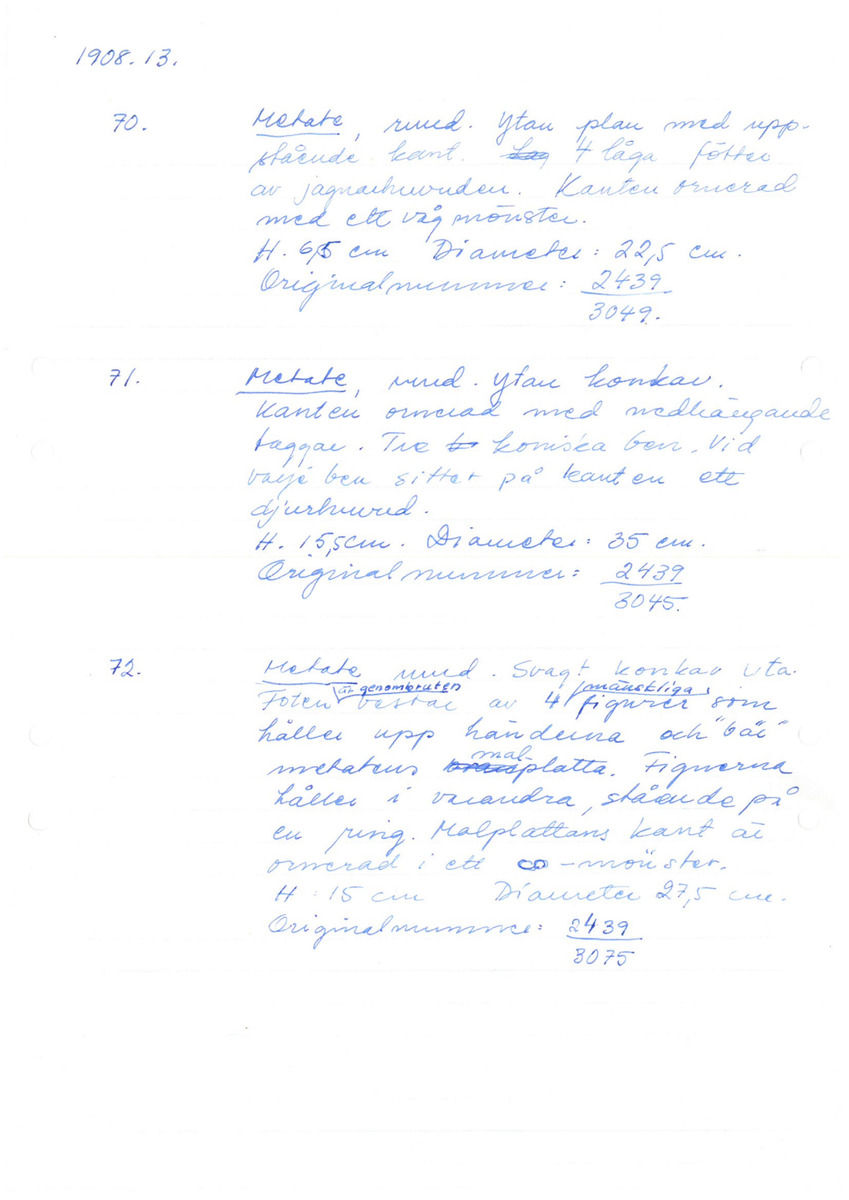 1908.13.
70. Metate, rund. Ytan plan med upp-
stående kant. 4 låga fötter
av jaguarhuvuden. Kanten ornerad
med ett vågmönster.
H. 6,5 cm Diameter: 22,5 cm.
Originalnummer: 2439
3049.
71. Metate, rund. Ytan konkav.
Kanten ornerad med nedhängande
taggar. Tre koniska ben. Vid
varje ben sitter på kanten ett
djurhuvud.
H. 15,5cm. Diameter: 35 cm.
Originalnummer: 2439
3045.
72. Metate rund. Svagt konkav yta.
är genombruten mänskliga
Foten består av 4 figurer som
håller upp händerna och "bär"
mal-
metatens platta. Figurerna
håller i varandra, stående på
en ring. Malplattans kant är
ornerad i ett ∞-mönster.
H: 15 cm Diameter 27,5 cm.
Originalnummer: 2439
3075